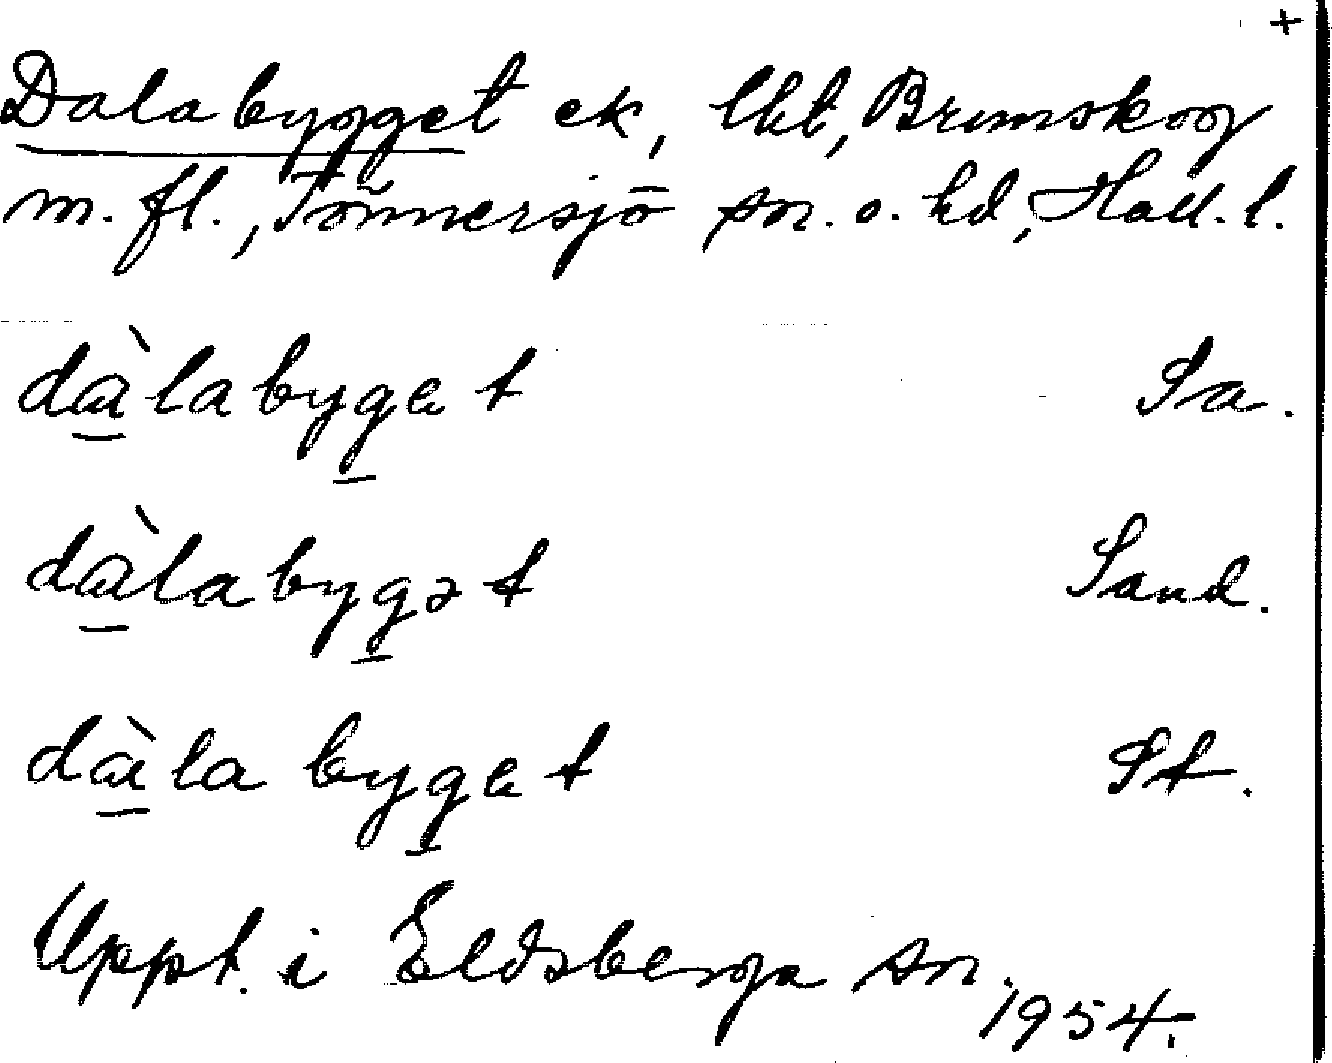 +
Dalabygget ek, lht, Brunskog
m. fl., Tönnersjö sn. o. hd, Hall. l.
dàlabyget Sa.
dàlabygət Sand.
dàlabyget St.
Uppt. i Eldsberga sn.
1954.